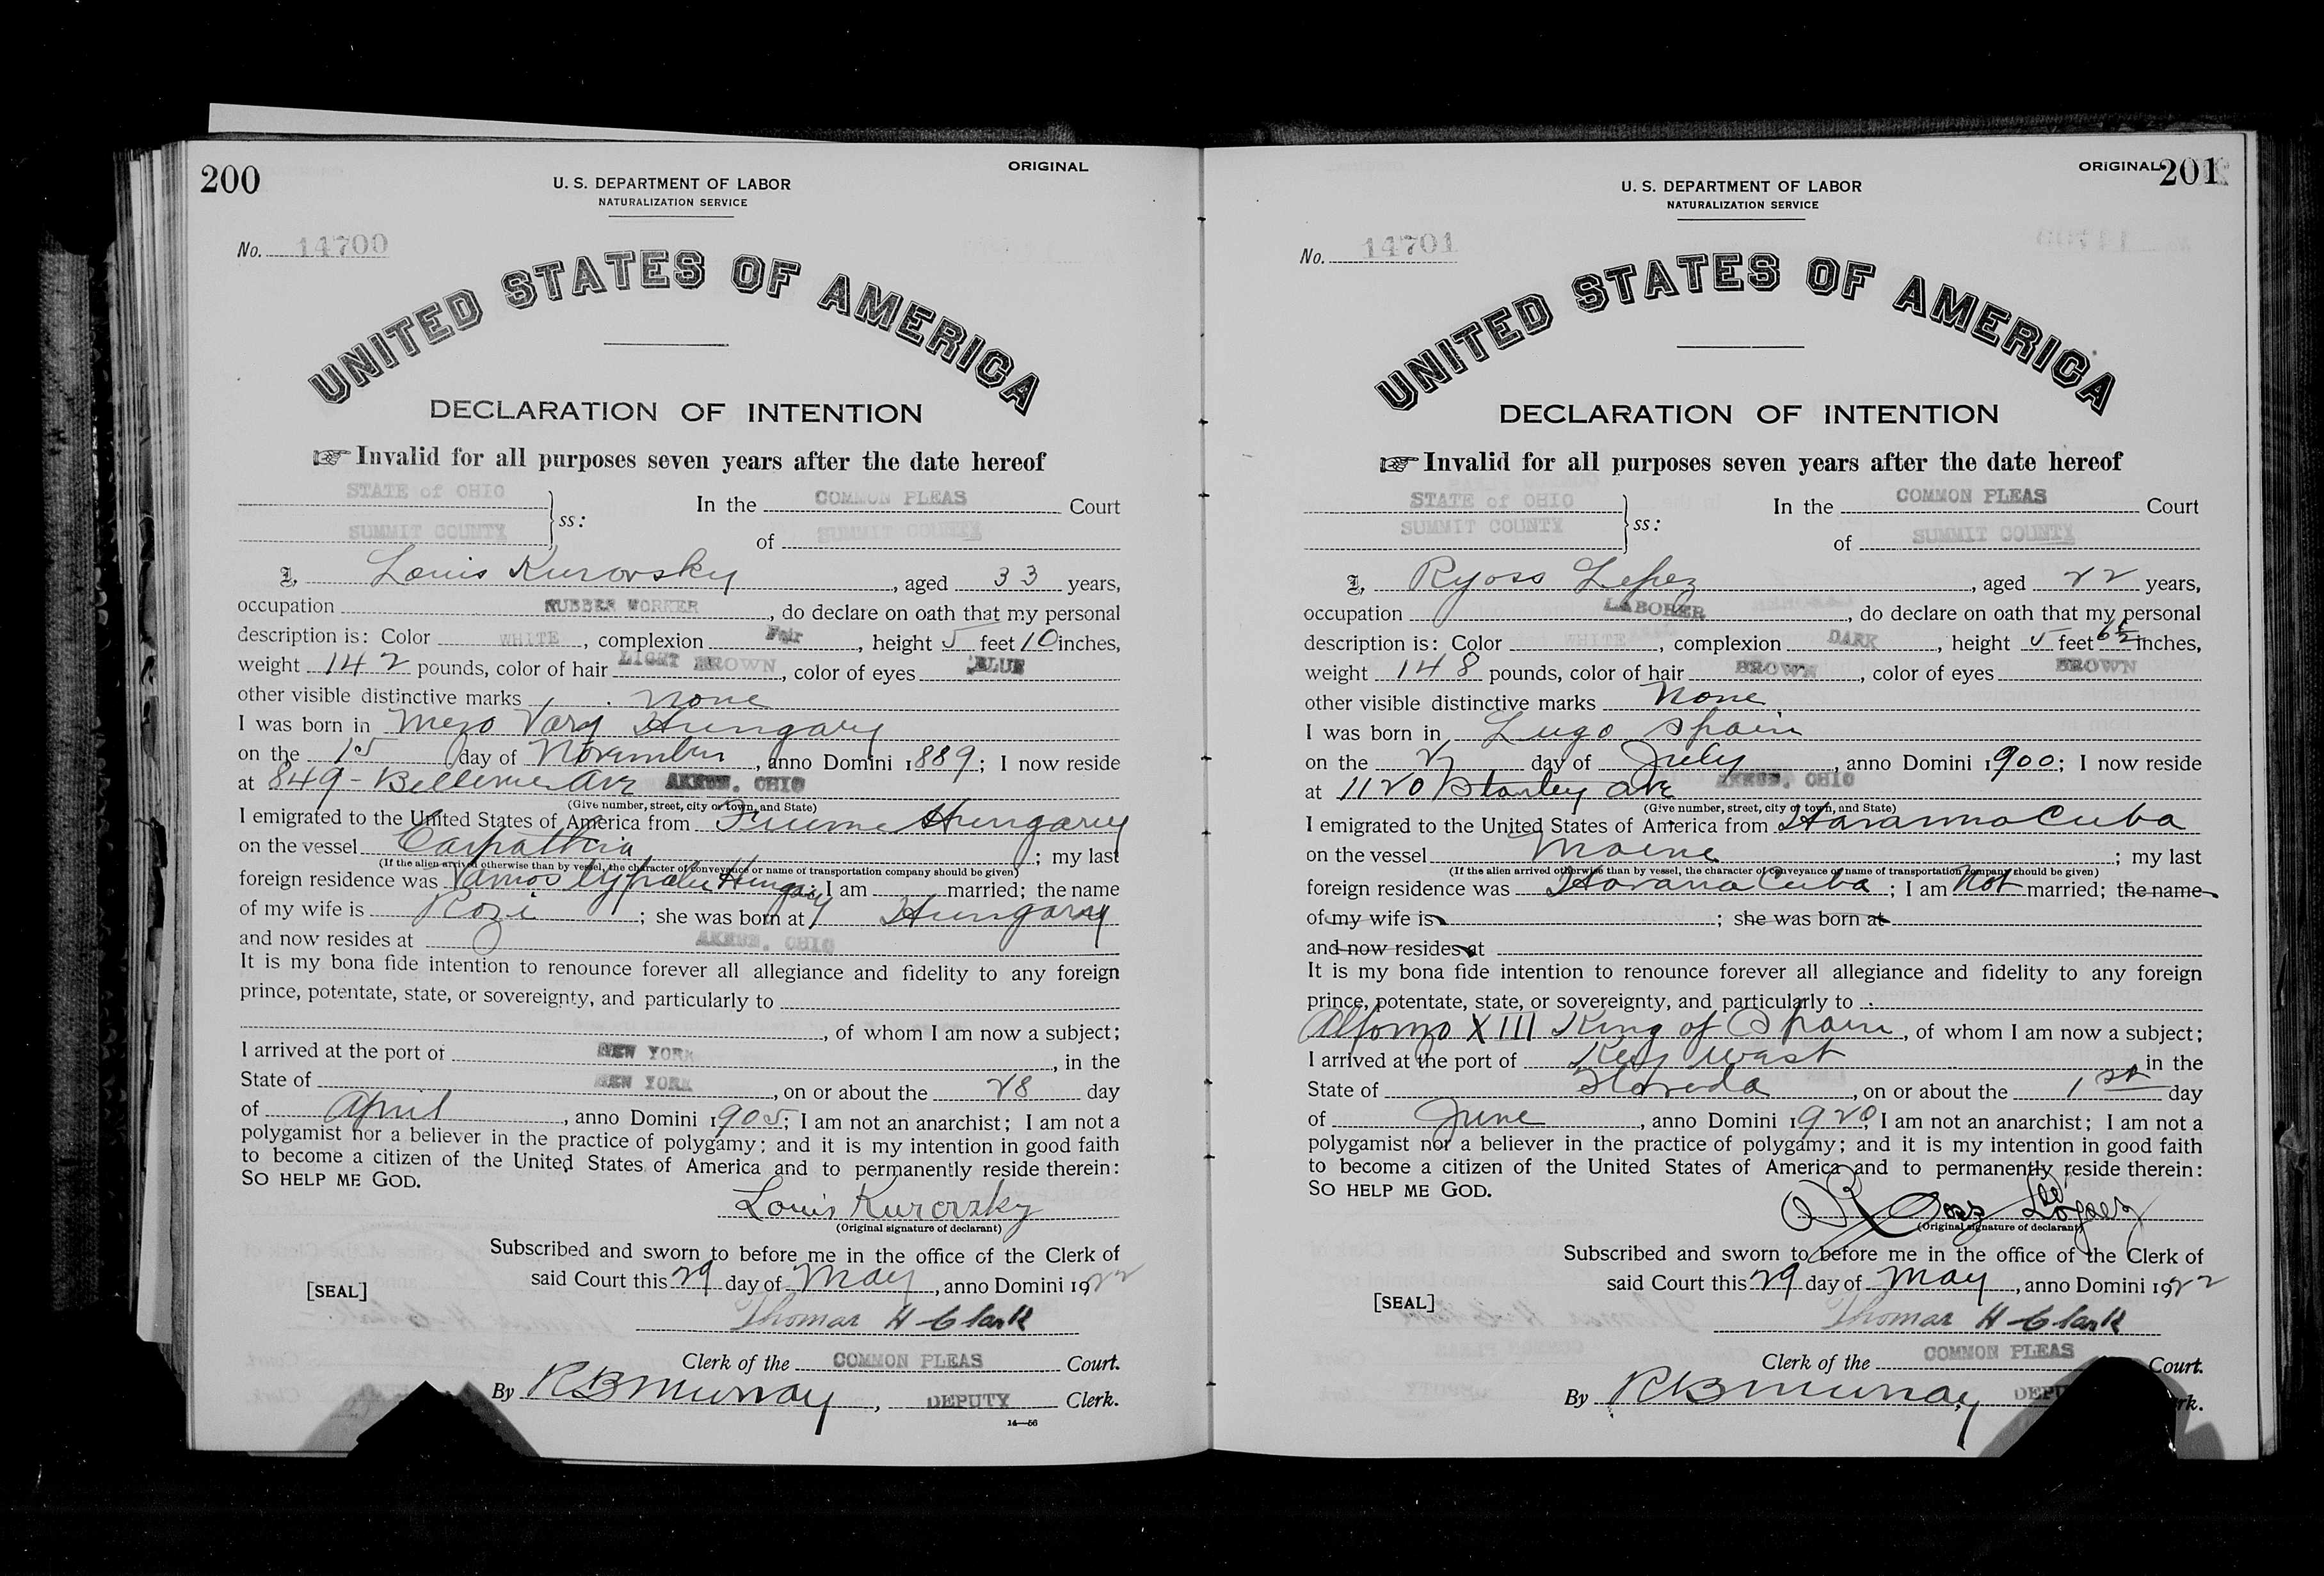 200
ORIGINAL
U. S. DEPARTMENT OF LABOR
NATURALIZATION SERVICE
No. 14700
UNITED STATES OF AMERICA
DECLARATION OF INTENTION
☞ Invalid for all purposes seven years after the date hereof
STATE of OHIO
SUMMIT COUNTY
ss:
In the COMMON PLEAS Court
of SUMMIT COUNTY
I, Louis Kurovsky, aged 33 years,
occupation RUBBER WORKER, do declare on oath that my personal
description is: Color WHITE, complexion Fair, height 5 feet 10 inches,
weight 142 pounds, color of hair LIGHT BROWN, color of eyes BLUE
other visible distinctive marks none
I was born in Mezo Vary Hungary
on the 15 day of November, anno Domini 1889; I now reside
at 849 - Bellevue Ave AKRON, OHIO
(Give number, street, city or town, and State)
I emigrated to the United States of America from Fiume Hungary
on the vessel Carpathia; my last
(If the alien arrived otherwise than by vessel, the character of conveyance or name of transportation company should be given)
foreign residence was Vamos Hungary; I am married; the name
of my wife is Rozi; she was born at Hungary
and now resides at AKRON, OHIO
It is my bona fide intention to renounce forever all allegiance and fidelity to any foreign
prince, potentate, state, or sovereignty, and particularly to
, of whom I am now a subject;
I arrived at the port of NEW YORK, in the
State of NEW YORK, on or about the 28 day
of April, anno Domini 1905; I am not an anarchist; I am not a
polygamist nor a believer in the practice of polygamy; and it is my intention in good faith
to become a citizen of the United States of America and to permanently reside therein:
SO HELP ME GOD.
Louis Kurovzky
(Original signature of declarant)
Subscribed and sworn to before me in the office of the Clerk of
said Court this 29 day of May, anno Domini 1922
[SEAL]
Thomas H Clark
Clerk of the COMMON PLEAS Court.
By R B Murray, DEPUTY Clerk.
14—56
ORIGINAL 201
U. S. DEPARTMENT OF LABOR
NATURALIZATION SERVICE
No. 14701
UNITED STATES OF AMERICA
DECLARATION OF INTENTION
☞ Invalid for all purposes seven years after the date hereof
STATE of OHIO
SUMMIT COUNTY
ss:
In the COMMON PLEAS Court
of SUMMIT COUNTY
I, Ryoss Lepez, aged 22 years,
occupation LABORER, do declare on oath that my personal
description is: Color WHITE, complexion DARK, height 5 feet 6½ inches,
weight 148 pounds, color of hair BROWN, color of eyes BROWN
other visible distinctive marks none
I was born in Lugo Spain
on the day of July, anno Domini 1900; I now reside
at 1120 Stanley ave AKRON, OHIO
(Give number, street, city or town, and State)
I emigrated to the United States of America from Havanna Cuba
on the vessel Maine; my last
(If the alien arrived otherwise than by vessel, the character of conveyance or name of transportation company should be given)
foreign residence was Havana Cuba; I am not married; the name
of my wife is ; she was born at
and now resides at
It is my bona fide intention to renounce forever all allegiance and fidelity to any foreign
prince, potentate, state, or sovereignty, and particularly to
Alfonzo XIII King of Spain, of whom I am now a subject;
I arrived at the port of Key West in the
State of Florida, on or about the 1st day
of June, anno Domini 1920; I am not an anarchist; I am not a
polygamist nor a believer in the practice of polygamy; and it is my intention in good faith
to become a citizen of the United States of America and to permanently reside therein:
SO HELP ME GOD.
(Original signature of declarant)
Subscribed and sworn to before me in the office of the Clerk of
said Court this 29 day of May, anno Domini 1922
[SEAL]
Thomas H Clark
Clerk of the COMMON PLEAS Court.
By R B Murray